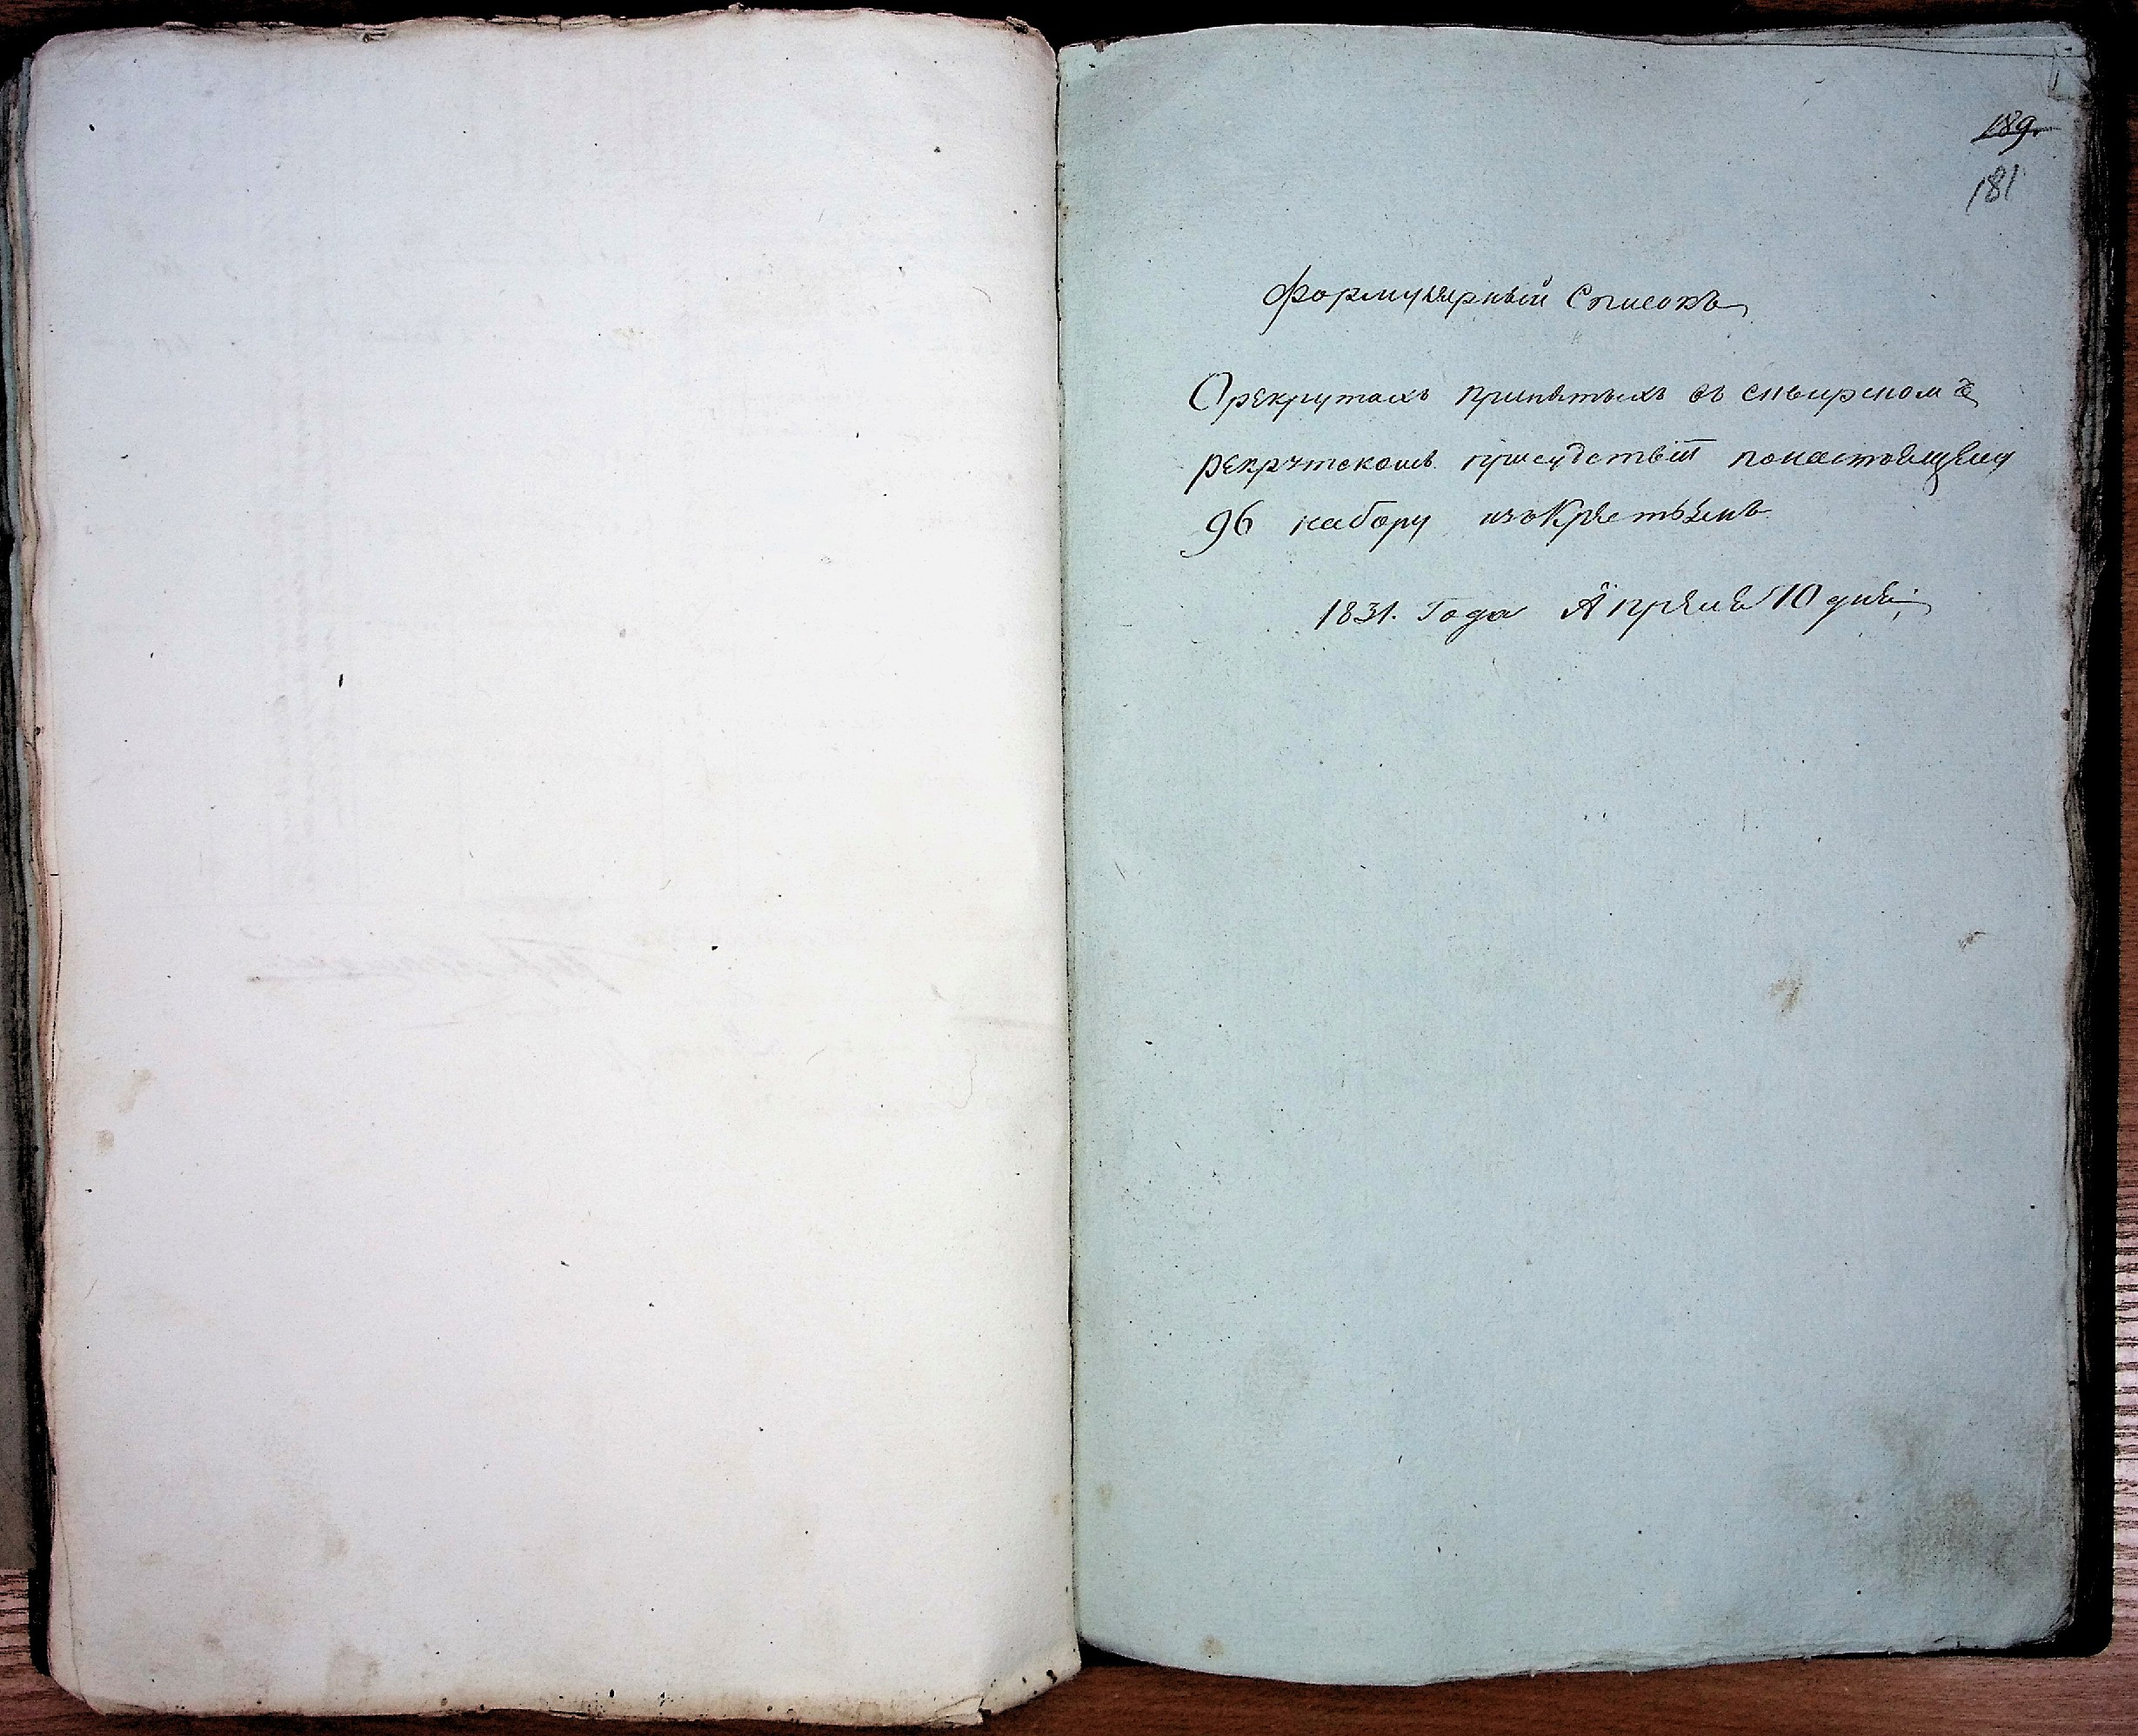 189.
181
Формулярный Списокъ
О рекрутахъ принятыхъ въ сквирскомъ
рекрутскомъ присудствіи понастоящему
96 набору изъ Крестьянъ
1831. Года Апреля 10 дня